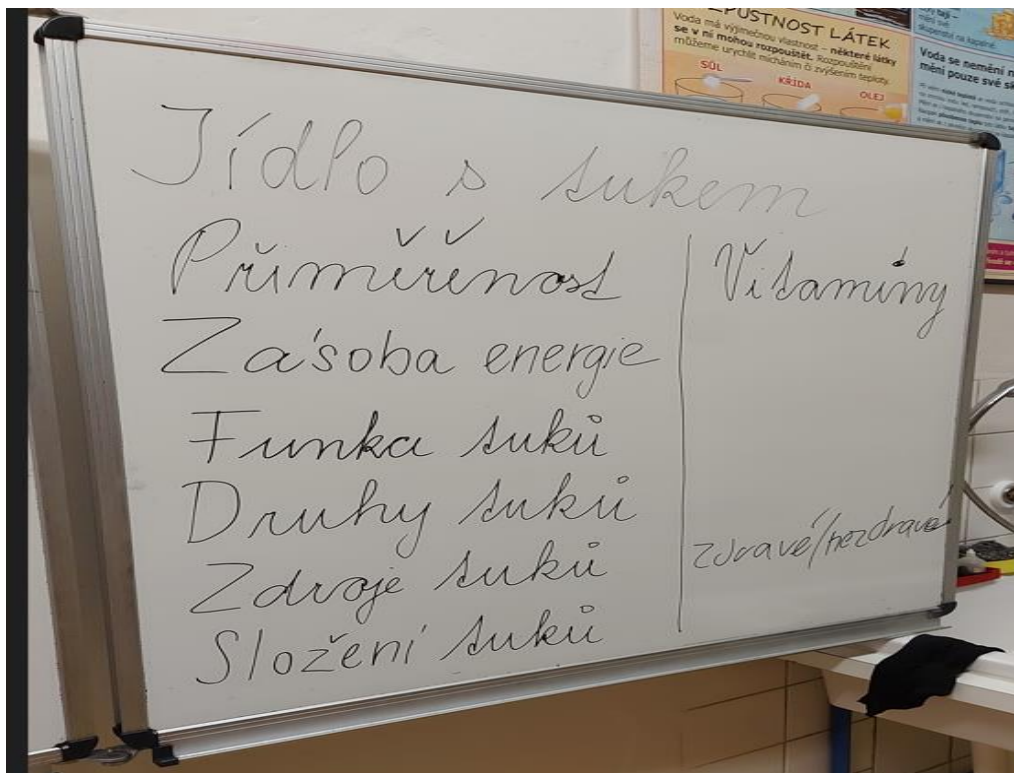 Jídlo s tukem
Přiměřenost
Zásoba energie
Funka tuků
Druhy tuků
Zdroje tuků
Složení tuků
Vitamíny
zdravé/nezdravé
ZPUSTNOST LÁTEK
Voda má výjimečnou vlastnost – některé látky
se v ní mohou rozpouštět. Rozpouštění
můžeme urychlit mícháním či zvýšením teploty.
SŮL
KŘÍDA
OLEJ
mění své
skupenství na kapalné.
Voda se nemění n
mění pouze své sk